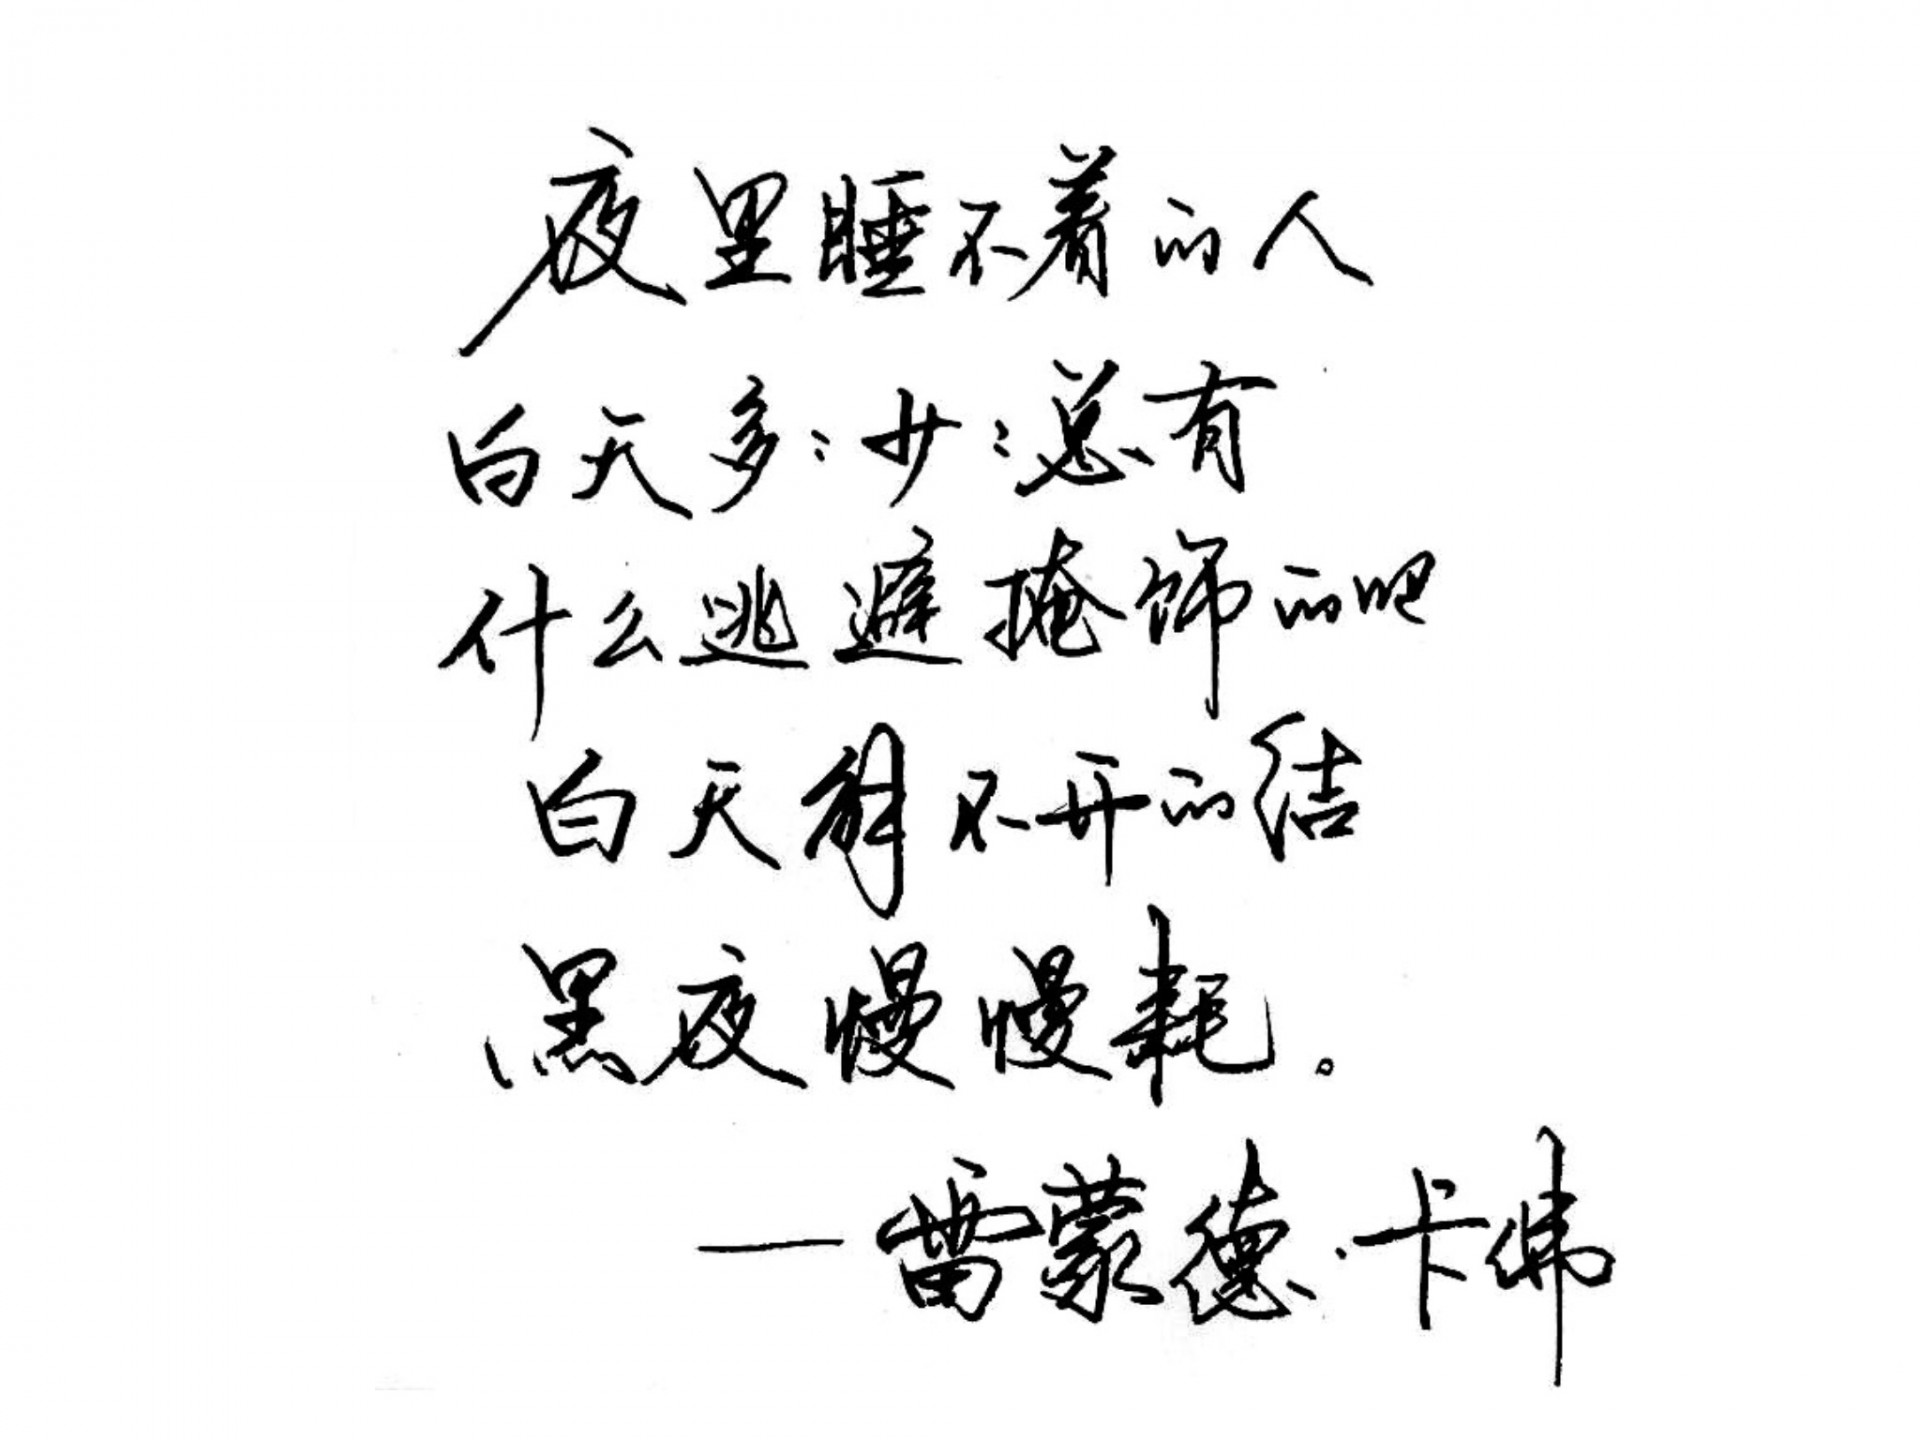 夜里睡不着的人
白天多:少:总有
什么逃避掩饰的吧
白天解不开的结
黑夜慢慢耗。
—雷蒙德·卡佛